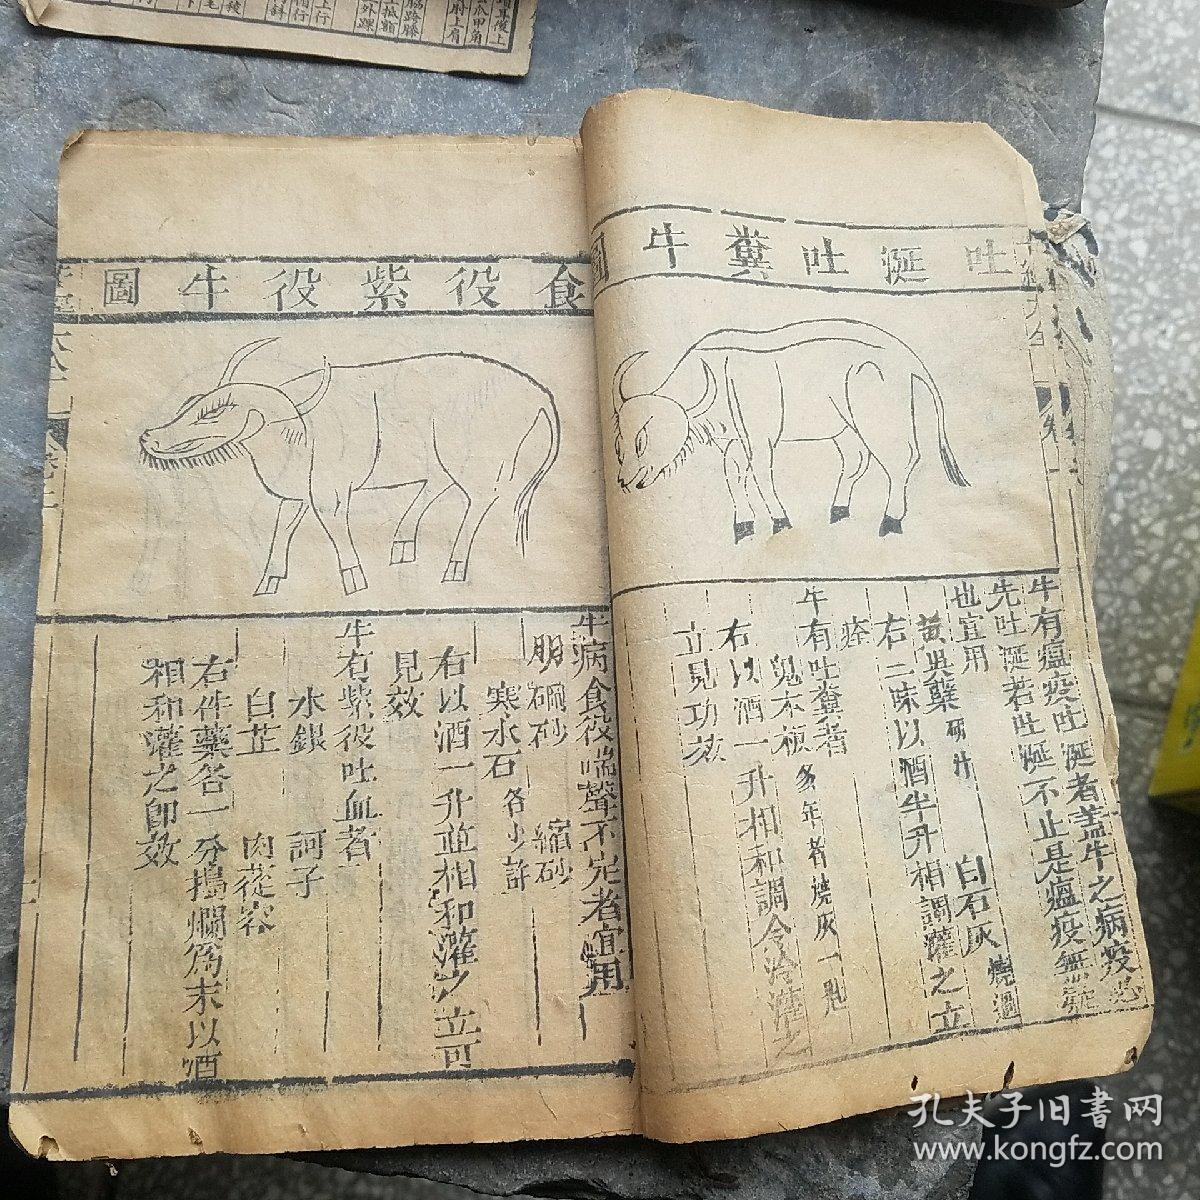 吐涎吐糞牛圖
牛有瘟疫吐涎者蓋牛之病疫必
先吐涎若吐涎不止是瘟疫無疑
也宜用
黃吳蘗 研汁 白石灰 燒過
右二味以酒半升相調灌之立
痊
牛有吐糞者
多年者燒灰一
右以酒一升相和調令冷灌之
立見功效
食役紫役牛圖
牛病食役喘聲不定者宜用
硇砂 縮砂
寒水石 各少許
右以酒一升並相和灌之立可
見效
牛有紫役吐血者
水銀 訶子
白芷 肉蓯容
右件藥各一分搗爛為末以酒
相和灌之即效
孔夫子旧書网
www.kongfz.com